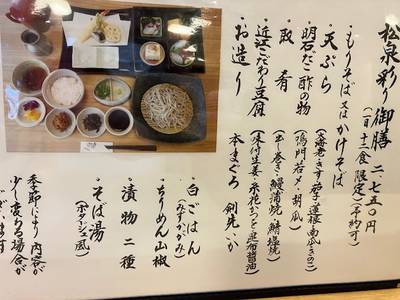 松泉彩り御膳 二、七五〇円
(一日十二食限定)(予約可)
・もりそば 又は かけそば
・天ぷら (大海老・きす・茄子・蓮根・南瓜・きのこ)
・明石だこ酢の物 (鳴門若メ・胡瓜)
・取肴 (出し巻き・鰻蒲焼・鯖塩焼)
・近江こだわり豆腐 (味付生姜・糸花かつを・昆布醤油)
・お造り 本まぐろ 剣先いか
・白ごはん (みずかがみ)
・ちりめん山椒
・漬物二種
・そば湯 (ポタージュ風)
季節により内容が
少し変わる場合が
ございます